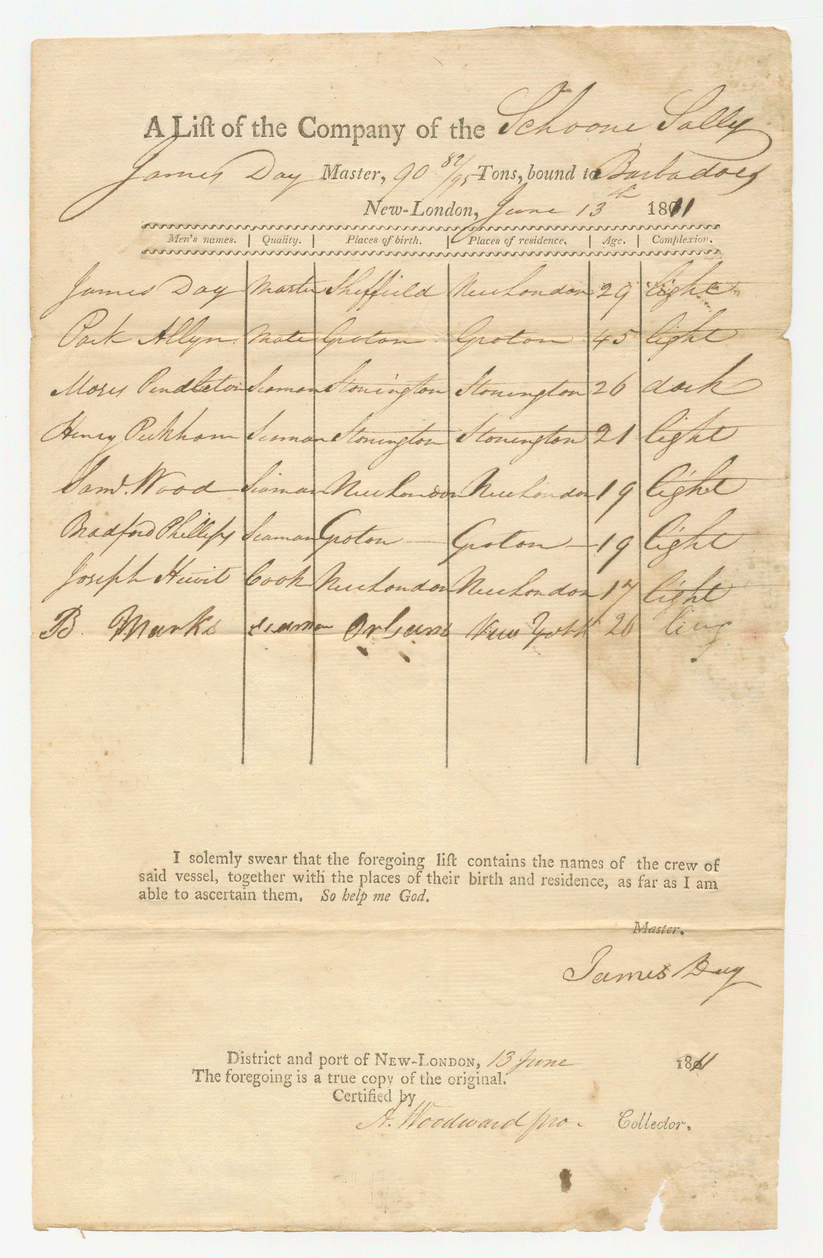 A List of the Company of the Schooner Sally
James Day Master, 90 82/95 Tons, bound to Barbadoes
New-London, June 13th 1811
Men's names. | Quality. | Places of birth. | Places of residence. | Age. | Complexion.
James Day Master Sheffield New London 29 light
Park Allyn Mate Groton Groton 45 light
Moses Pendleton Seaman Stonington Stonington 26 dark
Henry Peckham Seaman Stonington Stonington 21 light
Saml. Wood Seaman New London New London 19 light
Bradford Phillips Seaman Groton Groton 19 light
Joseph Hewit Cook New London New London 17 light
B. Marks seaman Orleans New York 26
I solemnly swear that the foregoing list contains the names of the crew of
said vessel, together with the places of their birth and residence, as far as I am
able to ascertain them. So help me God.
Master.
James Day
District and port of New-London, 13 June 1811
The foregoing is a true copy of the original.
Certified by
A. Woodward pro. Collector.